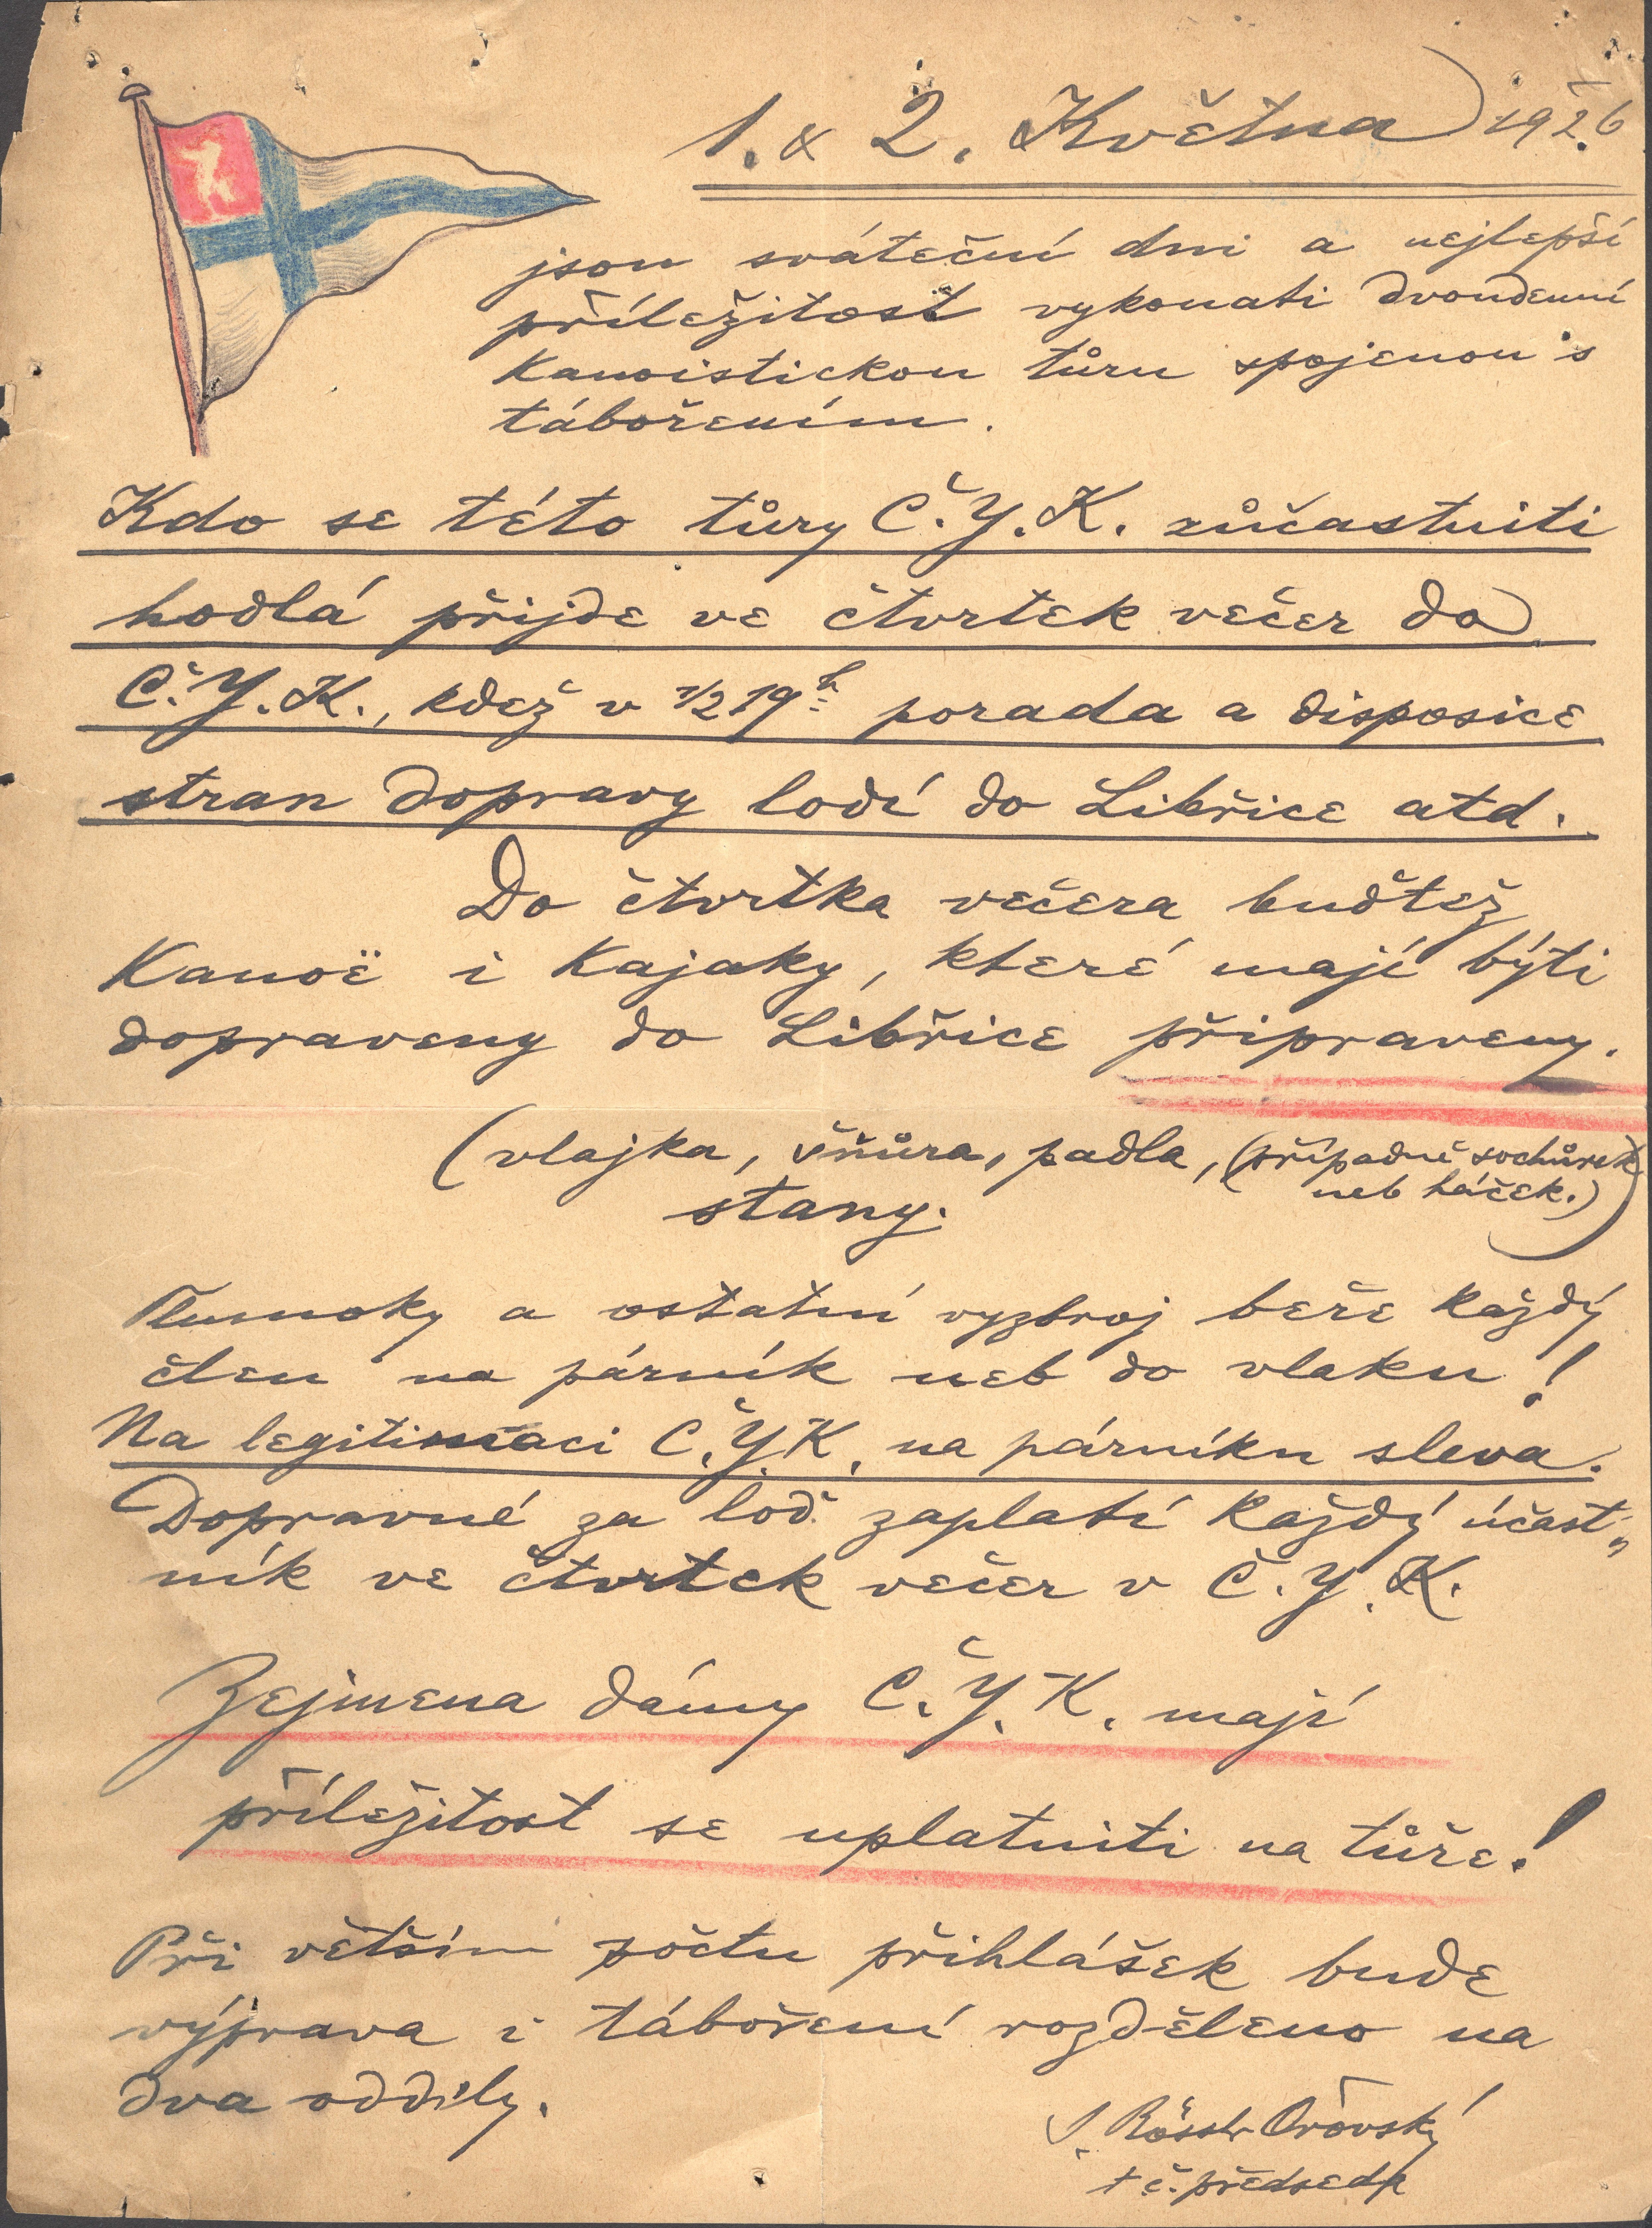 1. & 2. Května 1926
jsou sváteční dni a nejlepší
příležitost vykonati dvoudenní
kanoistickou tůru spojenou s
tábořením.
Kdo se této tůry Č.Y.K. zůčastniti
hodlá přijde ve čtvrtek večer do
Č.Y.K., kdež v 1/2 19h porada a disposice
stran dopravy lodí do Libřice atd.
Do čtvrtka večera buďtež
Kanoë i Kajaky, které mají býti
dopraveny do Libřice připraveny.
(vlajka, šňůra, padla, (případně sochůrek
neb háček.)
stany.)
Tlumoky a ostatní vyzbroj beře každý
člen na párník neb do vlaku!
Na legitimaci Č.Y.K. na párníku sleva.
Dopravné za loď zaplatí každý účast-
ník ve čtvrtek večer v Č.Y.K.
Zejmena dámy Č.Y.K. mají
příležitost se uplatniti na tůře!
Při větším počtu přihlášek bude
výprava i táboření rozděleno na
dva oddíly.
J. Rössler Ořovský
t č. předseda